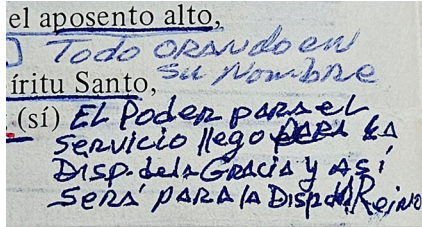 el aposento alto,
Todo ORANdo en
íritu Santo, su Nombre
(sí) EL Poder PARA el
Servicio llego PARA LA
Disp. dela GRACIA y ASÍ
SERÁ PARA la Disp del Reino